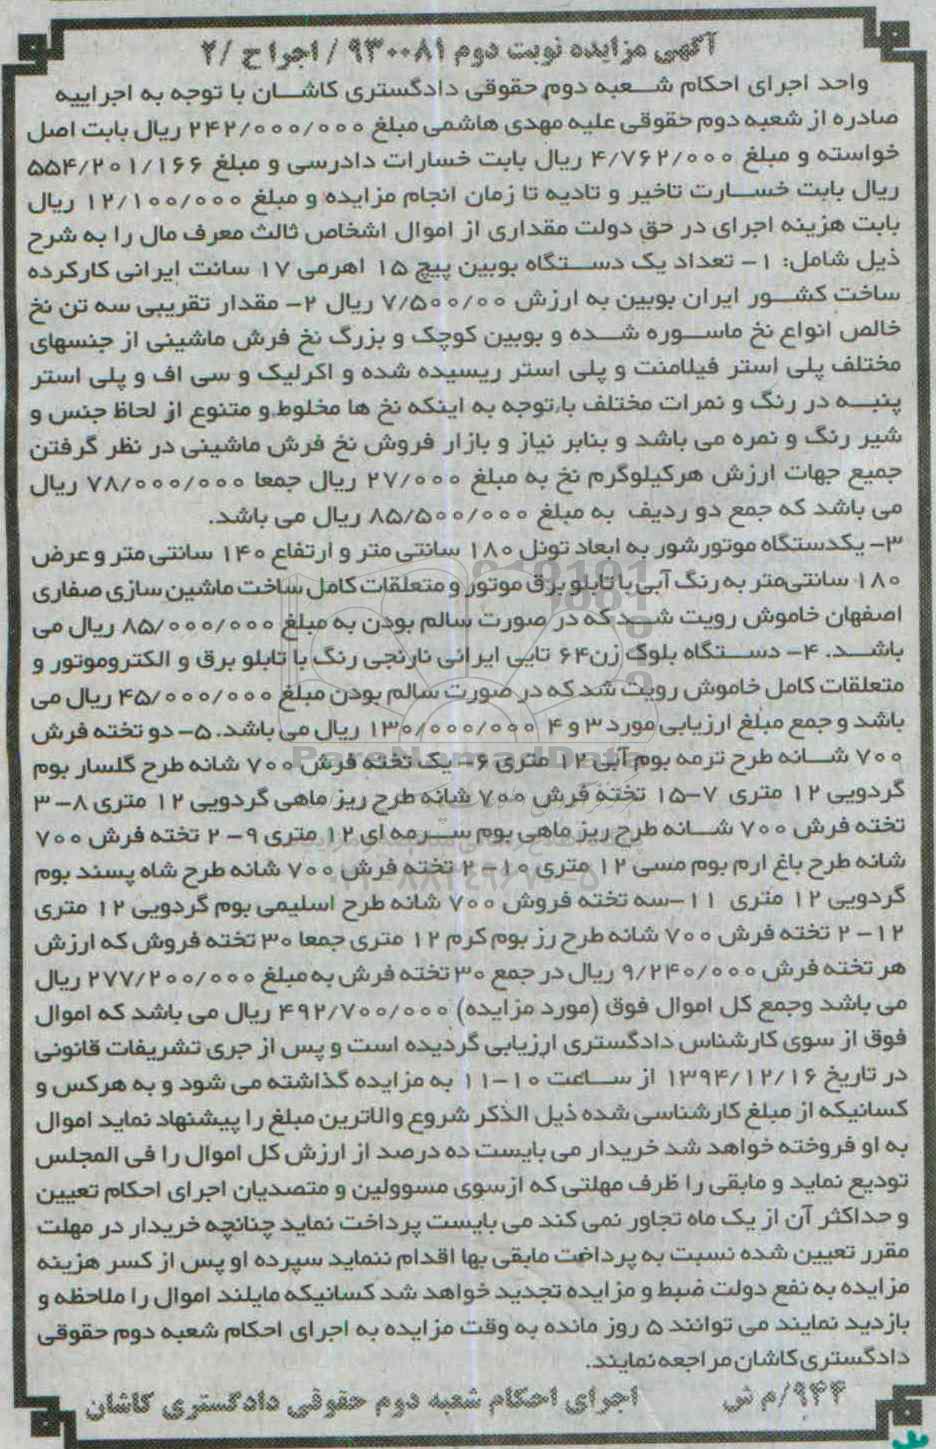 آگهی مزایده نوبت دوم ۹۳۰۰۸۱ / اجرا ح /۲
واحد اجرای احکام شعبه دوم حقوقی دادگستری کاشان با توجه به اجراییه
صادره از شعبه دوم حقوقی علیه مهدی هاشمی مبلغ ۲۴۲/۰۰۰/۰۰۰ ریال بابت اصل
خواسته و مبلغ ۴/۷۶۲/۰۰۰ ریال بابت خسارات دادرسی و مبلغ ۵۵۴/۲۰۱/۱۶۶
ریال بابت خسارت تاخیر و تادیه تا زمان انجام مزایده و مبلغ ۱۲/۱۰۰/۰۰۰ ریال
بابت هزینه اجرای در حق دولت مقداری از اموال اشخاص ثالث معرف مال را به شرح
ذیل شامل: ۱- تعداد یک دستگاه بوبین پیچ ۱۵ اهرمی ۱۷ سانت ایرانی کارکرده
ساخت کشور ایران بوبین به ارزش ۷/۵۰۰/۰۰ ریال ۲- مقدار تقریبی سه تن نخ
خالص انواع نخ ماسوره شده و بوبین کوچک و بزرگ نخ فرش ماشینی از جنسهای
مختلف پلی استر فیلامنت و پلی استر ریسیده شده و اکرلیک و سی اف و پلی استر
پنبه در رنگ و نمرات مختلف با توجه به اینکه نخ ها مخلوط و متنوع از لحاظ جنس و
شیر رنگ و نمره می باشد و بنابر نیاز و بازار فروش نخ فرش ماشینی در نظر گرفتن
جمیع جهات ارزش هرکیلوگرم نخ به مبلغ ۲۷/۰۰۰ ریال جمعا ۷۸/۰۰۰/۰۰۰ ریال
می باشد که جمع دو ردیف به مبلغ ۸۵/۵۰۰/۰۰۰ ریال می باشد.
۳- یکدستگاه موتورشور به ابعاد تونل ۱۸۰ سانتی متر و ارتفاع ۱۴۰ سانتی متر و عرض
۱۸۰ سانتی‌متر به رنگ آبی با تابلو برق موتور و متعلقات کامل ساخت ماشین سازی صفاری
اصفهان خاموش رویت شد که در صورت سالم بودن به مبلغ ۸۵/۰۰۰/۰۰۰ ریال می
باشد. ۴- دستگاه بلوک زن ۶۴ تایی ایرانی نارنجی رنگ با تابلو برق و الکتروموتور و
متعلقات کامل خاموش رویت شد که در صورت سالم بودن مبلغ ۴۵/۰۰۰/۰۰۰ ریال می
باشد و جمع مبلغ ارزیابی مورد ۳ و ۴ ۱۳۰/۰۰۰/۰۰۰ ریال می باشد. ۵- دو تخته فرش
۷۰۰ شانه طرح ترمه بوم آبی ۱۲ متری ۶- یک تخته فرش ۷۰۰ شانه طرح گلسار بوم
گردویی ۱۲ متری ۷-۱۵ تخته فرش ۷۰۰ شانه طرح ریز ماهی گردویی ۱۲ متری ۸- ۳
تخته فرش ۷۰۰ شانه طرح ریز ماهی بوم سرمه ای ۱۲ متری ۹- ۲ تخته فرش ۷۰۰
شانه طرح باغ ارم بوم مسی ۱۲ متری ۱۰- ۲ تخته فرش ۷۰۰ شانه طرح شاه پسند بوم
گردویی ۱۲ متری ۱۱-سه تخته فروش ۷۰۰ شانه طرح اسلیمی بوم گردویی ۱۲ متری
۱۲- ۲ تخته فرش ۷۰۰ شانه طرح رز بوم کرم ۱۲ متری جمعا ۳۰ تخته فروش که ارزش
هر تخته فرش ۹/۲۴۰/۰۰۰ ریال در جمع ۳۰ تخته فرش به مبلغ ۲۷۷/۲۰۰/۰۰۰ ریال
می باشد وجمع کل اموال فوق (مورد مزایده) ۴۹۲/۷۰۰/۰۰۰ ریال می باشد که اموال
فوق از سوی کارشناس دادگستری ارزیابی گردیده است و پس از جری تشریفات قانونی
در تاریخ ۱۳۹۴/۱۲/۱۶ از ساعت ۱۰-۱۱ به مزایده گذاشته می شود و به هرکس و
کسانیکه از مبلغ کارشناسی شده ذیل الذکر شروع والاترین مبلغ را پیشنهاد نماید اموال
به او فروخته خواهد شد خریدار می بایست ده درصد از ارزش کل اموال را فی المجلس
تودیع نماید و مابقی را ظرف مهلتی که ازسوی مسوولین و متصدیان اجرای احکام تعیین
و حداکثر آن از یک ماه تجاوز نمی کند می بایست پرداخت نماید چنانچه خریدار در مهلت
مقرر تعیین شده نسبت به پرداخت مابقی بها اقدام ننماید سپرده او پس از کسر هزینه
مزایده به نفع دولت ضبط و مزایده تجدید خواهد شد کسانیکه مایلند اموال را ملاحظه و
بازدید نمایند می توانند ۵ روز مانده به وقت مزایده به اجرای احکام شعبه دوم حقوقی
دادگستری کاشان مراجعه نمایند.
۹۴۴/م ش اجرای احکام شعبه دوم حقوقی دادگستری کاشان